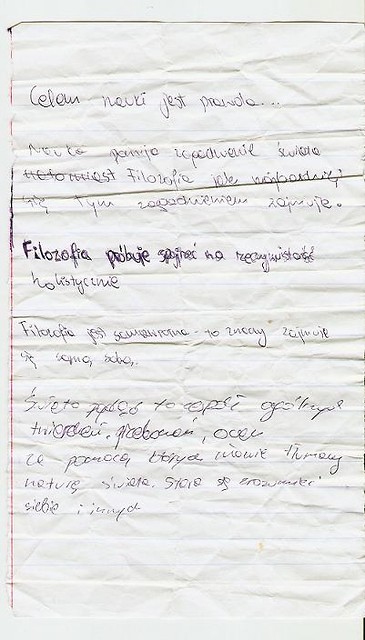 Celem nauki jest prawda...
Nauka pomija zagadnienie świata
natomiast Filozofia jak najbardziej
się tym zagadnieniem zajmuje.
Filozofia próbuje spojrzeć na rzeczywistość
holistycznie
Filozofia jest samozwrotna - to znaczy zajmuje
się samą sobą.
Światopogląd to zespół ogólnych
twierdzeń, przekonań, ocen
za pomocą których tłumaczy
naturę świata. Stara się zrozumieć
siebie i innych